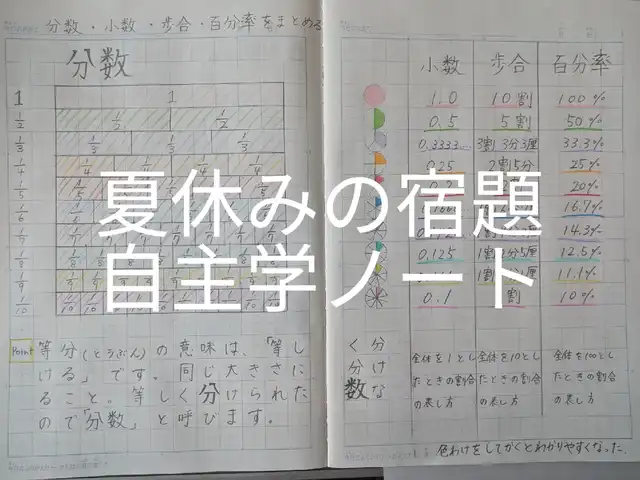 分数・小数・歩合・百分率をまとめる
分数
1 1
1/2 1/2 1/2
1/3 1/3 1/3 1/3
1/4 1/4 1/4 1/4 1/4
1/5
1/6
1/8
1/9
1/10
Point 等分(とうぶん)の意味は、「等し
ける」です。同じ大きさに
ること。等しく分けられた
ので「分数」と呼びます。
く分
分け
数な
小数 歩合 百分率
1.0 10割 100%
0.5 5割 50%
0.3333… 3割3分3厘 33.3%
0.25 2割5分 25%
20%
16.7%
14.3%
0.125 1割2分5厘 12.5%
11.1%
0.1 割 10%
全体を1とし 全体を10とし 全体を100とし
たときの割合 たときの割合 たときの割合
の表し方 の表し方 の表し方
色わけをしてかくとわかりやすくなった.
夏休みの宿題
自主学ノート